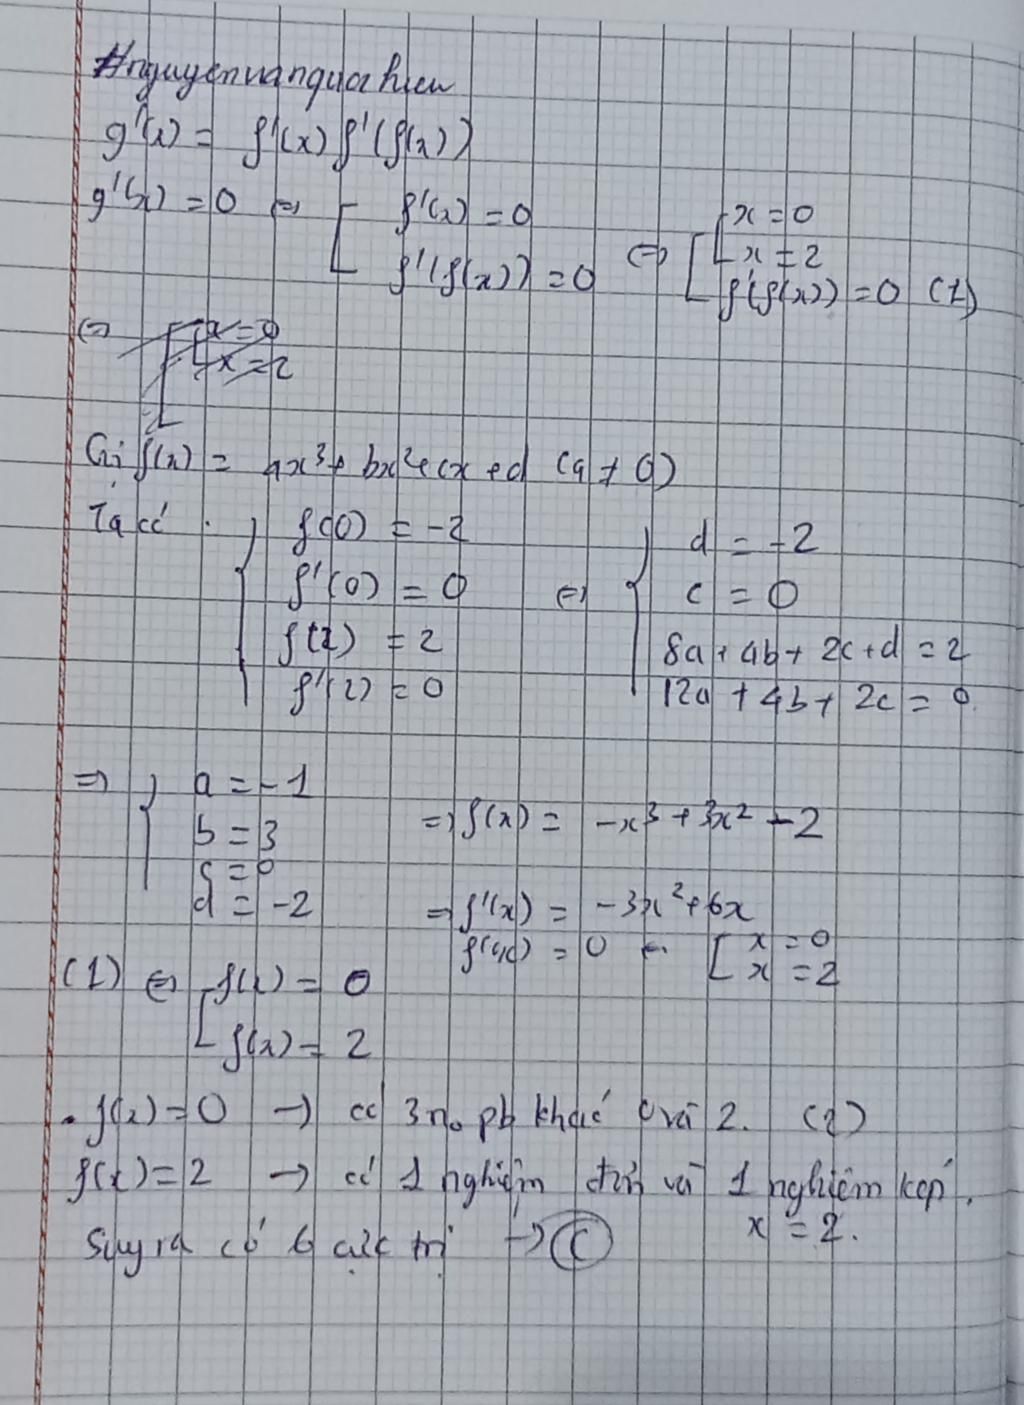 #nguyenvanquochieu
g'(x) = f'(x) f'(f(x))
g'(x) = 0 ⇔ [ f'(x) = 0 ; f'(f(x)) = 0 ⇔ [ [ x = 0 ; x = 2 ; f'(f(x)) = 0 (1)
⇔ [ [ x = 0 ; x = 2
Gọi f(x) = ax³ + bx² + cx + d (a ≠ 0)
Ta có { f(0) = -2 ⇔ { d = -2
f'(0) = 0 c = 0
f(2) = 2 8a + 4b + 2c + d = 2
f'(2) = 0 12a + 4b + 2c = 0
⇒ { a = -1
b = 3 ⇒ f(x) = -x³ + 3x² - 2
c = 0
d = -2 ⇒ f'(x) = -3x² + 6x
f'(x) = 0 ⇔ [ x = 0 ; x = 2
(1) ⇔ [ f(x) = 0
f(x) = 2
. f(x) = 0 → có 3 no pb khác 0 và 2. (2)
f(x) = 2 → có 1 nghiệm đơn và 1 nghiệm kép.
x = 2.
Suy ra có 6 cực trị → C